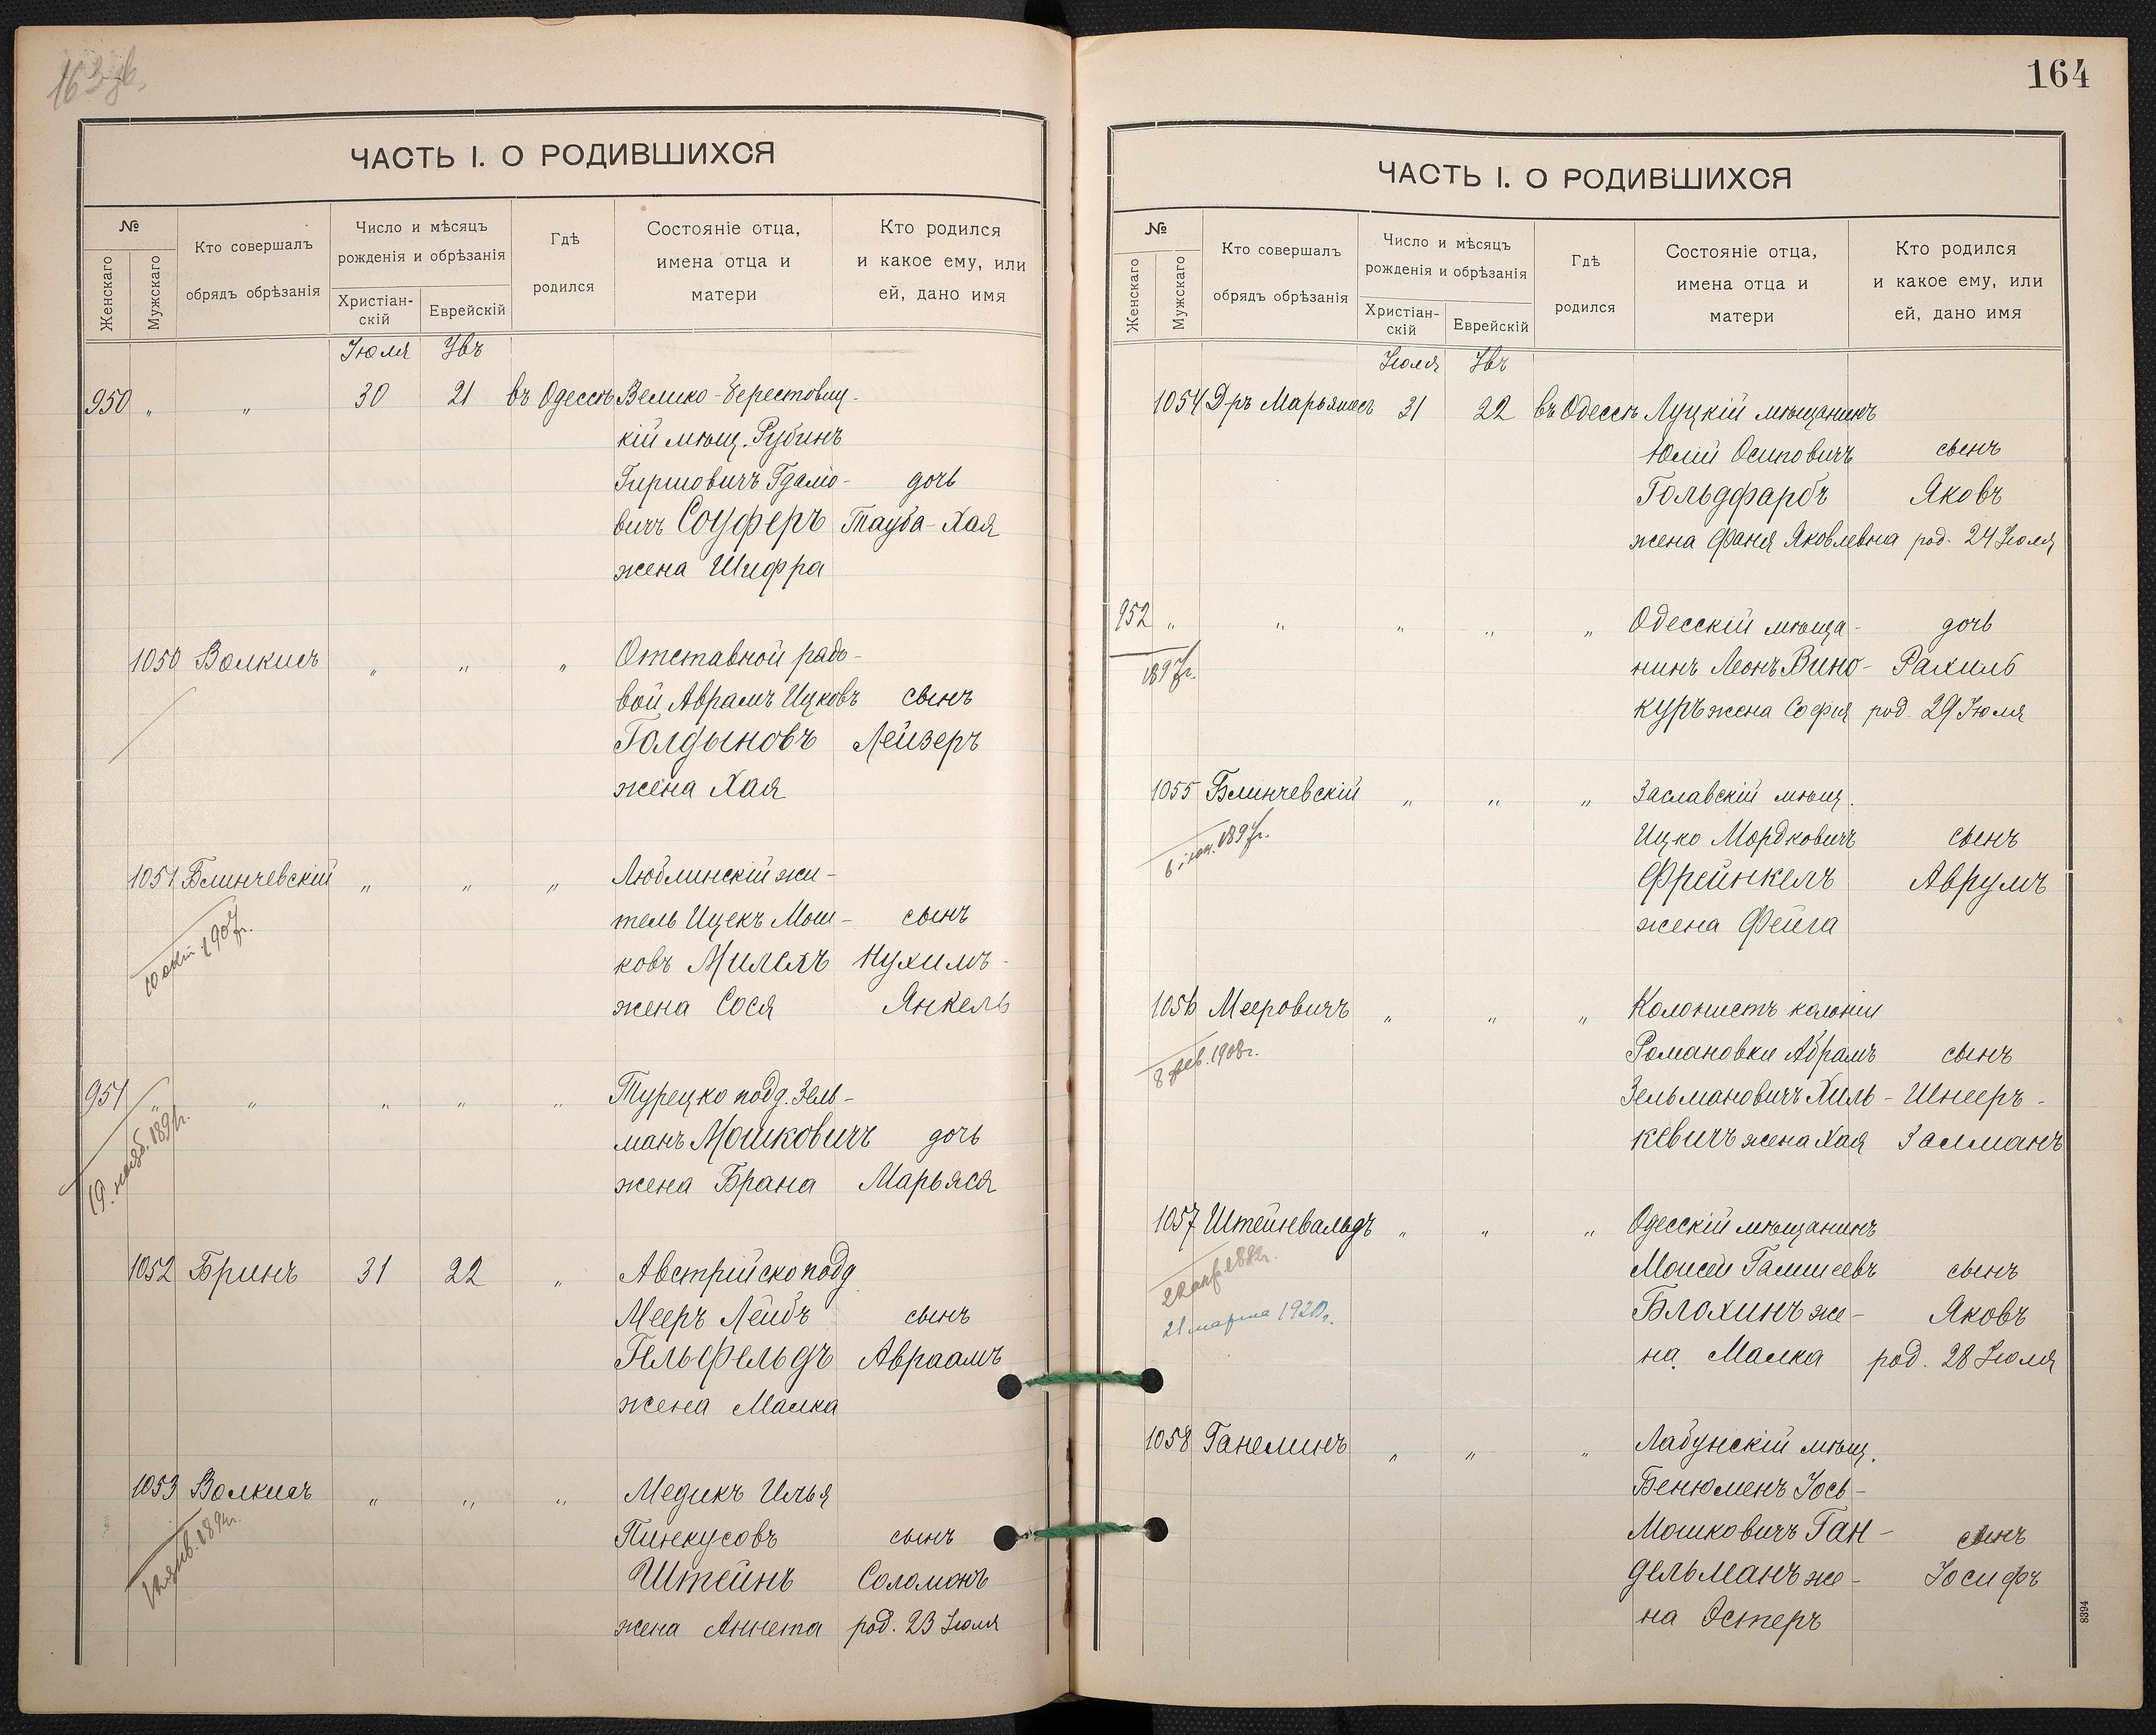 163 об.
ЧАСТЬ I. О РОДИВШИХСЯ
№
Женскаго
Мужскаго
Кто совершалъ
обрядъ обрѣзанія
Число и мѣсяцъ
рожденія и обрѣзанія
Христіан-
скій
Еврейскій
Гдѣ
родился
Состояніе отца,
имена отца и
матери
Кто родился
и какое ему, или
ей, дано имя
Іюля Увъ
950 „ „ 30 21 въ Одессѣ Велико-Берестовиц-
кій мѣщ. Рубинъ
Гиршовичъ Гдаліо- дочь
вичъ Соуферъ Тауба-Хая
жена Шифра
1050 Волкисъ „ „ „ Отставной рядо-
вой Аврамъ Ицковъ сынъ
Голдыновъ Лейзеръ
жена Хая
1051 Блинчевскій „ „ „ Люблинскій жи-
тель Ицекъ Мош- сынъ
ковъ Милехъ Нухимъ-
жена Сося Янкель
10 окт. 1907г.
951 „ „ „ „ „ Турецко подд. Зель-
манъ Мошковичъ дочь
жена Брана Марьяся
19. нояб. 1891г.
1052 Бринъ 31 22 „ Австрійско подд
Мееръ Лейбъ сынъ
Гельфельдъ Авраамъ
жена Малка
1053 Волкисъ „ „ „ Медикъ Илья
Пинкусовъ сынъ
Штейнъ Соломонъ
жена Аннета род. 23 Іюля
164
ЧАСТЬ I. О РОДИВШИХСЯ
№
Женскаго
Мужскаго
Кто совершалъ
обрядъ обрѣзанія
Число и мѣсяцъ
рожденія и обрѣзанія
Христіан-
скій
Еврейскій
Гдѣ
родился
Состояніе отца,
имена отца и
матери
Кто родился
и какое ему, или
ей, дано имя
Іюля Увъ
1054 Д ръ Марьяшесъ 31 22 въ Одессѣ Луцкій мѣщанинъ
Юлій Осиповичъ сынъ
Гольдфарбъ Яковъ
жена Фаня Яковлевна род. 24 Іюля
952 „ „ „ „ „ Одесскій мѣща- дочь
1897г. нинъ Леонъ Вино- Рахиль
куръ жена Софія род. 29 Іюля
1055 Блинчевскій „ „ „ Заславскій мѣщ.
Ицко Мордковичъ сынъ
Фрейнкелъ Аврумъ
жена Фейга
1897г.
1056 Мееровичъ „ „ „ Колонистъ колоніи
Романовки Абрамъ сынъ
Зельмановичъ Хиль- Шнееръ-
кевичъ жена Хая Залманъ
8 фев. 1908г.
1057 Штейнвальдъ „ „ „ Одесскій мѣщанинъ
Моисей Гамшеевъ сынъ
Блохинъ же- Яковъ
на Малка род. 28 Іюля
21 марта 1920г.
1058 Ганелинъ „ „ „ Лабунскій мѣщ.
Бенюменъ Іось-
Мошковичъ Ган- сынъ
дельманъ же- Іосифъ
на Эстеръ
8394